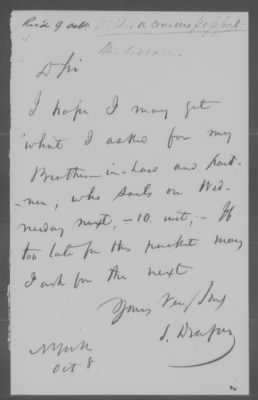 Recd 9 Octr
D Sir
I hope I may get
what I asked for my
Brother-in-law and Part-
ner, who sails on Wed-
nesday next, - 10. inst, - If
too late for this packet may
I ask for the next
Yours Very Truly
S. Draper
N York
Oct 8.